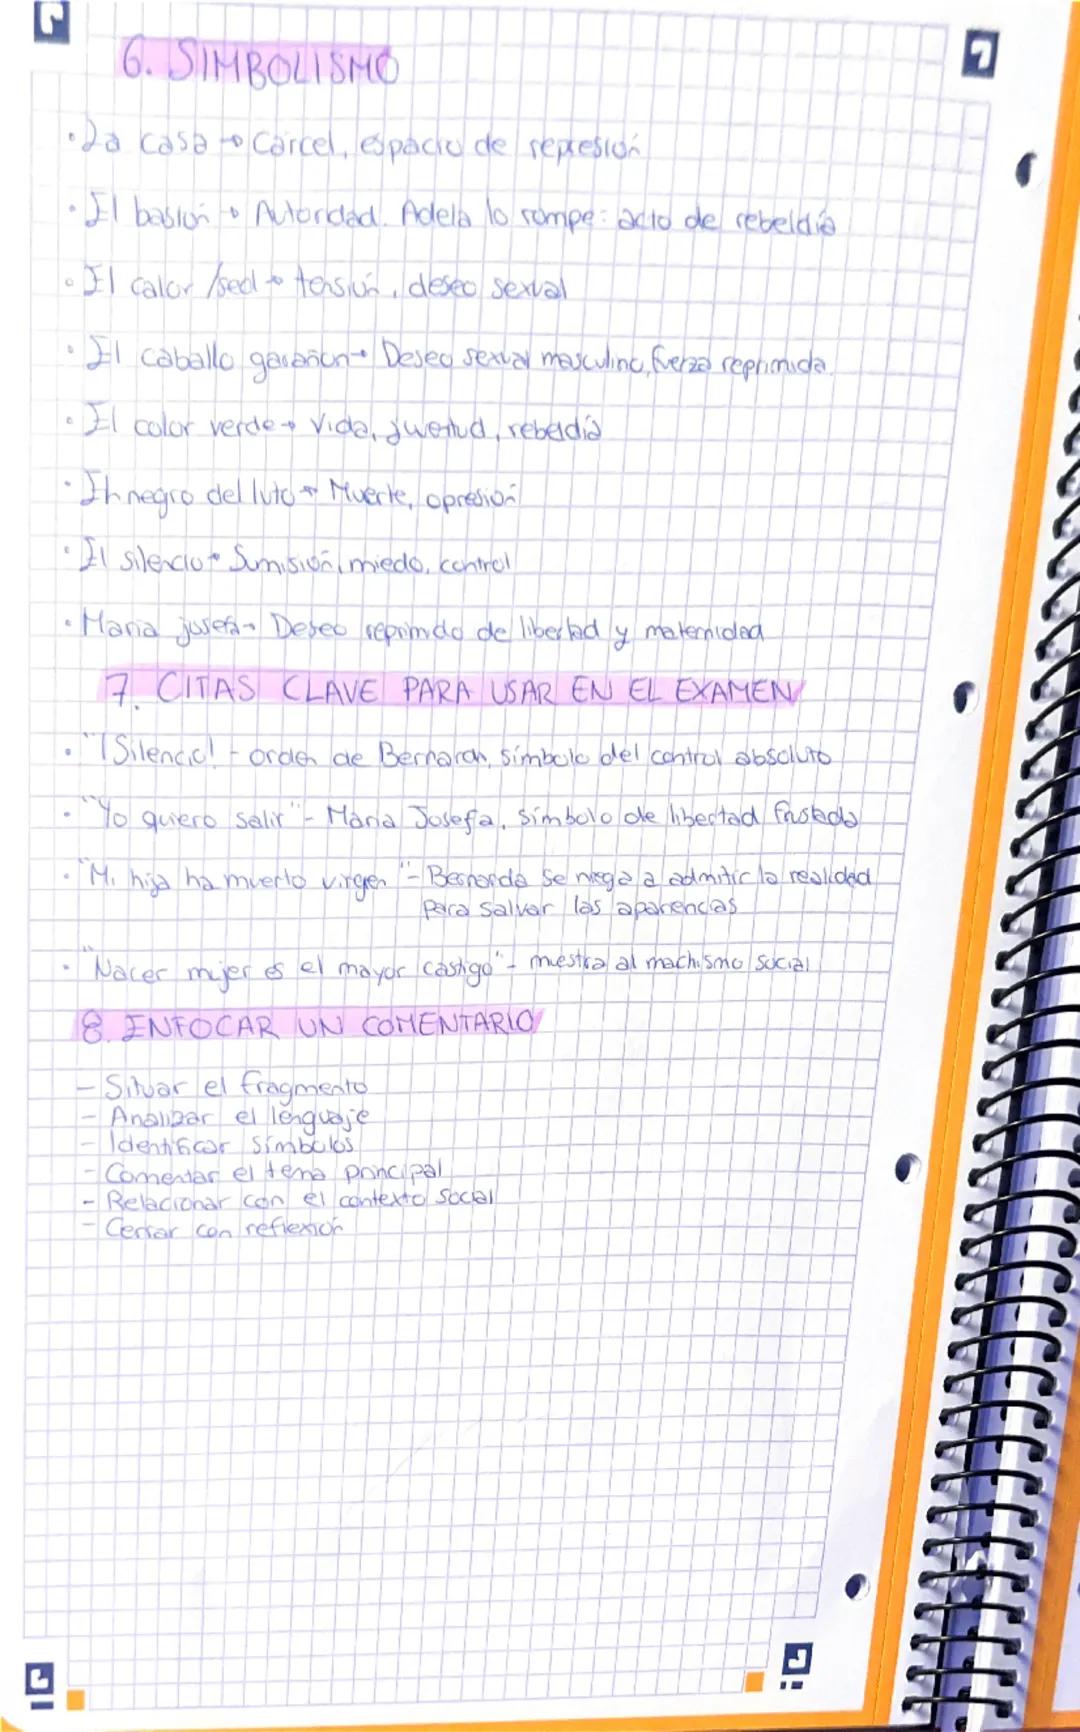 6. SIMBOLISMO
• La casa → Cárcel, espacio de represión
• El bastón → Autoridad. Adela lo rompe: acto de rebeldía
• El calor /sed → tensión, deseo sexual
• El caballo garañón → Deseo sexual masculino, fuerza reprimida.
• El color verde → Vida, juventud, rebeldía
• El negro del luto → Muerte, opresión
• El silencio → Sumisión, miedo, control
• Maria josefa → Deseo reprimido de libertad y maternidad
7. CITAS CLAVE PARA USAR EN EL EXAMEN
• "¡Silencio! - orden de Bernarda, símbolo del control absoluto
• "Yo quiero salir" - Maria Josefa, símbolo de libertad frustada
• "Mi hija ha muerto virgen" - Bernarda se niega a admitir la realidad
para salvar las apariencias
• "Nacer mujer es el mayor castigo" - muestra al machismo social
8. ENFOCAR UN COMENTARIO
- Situar el fragmento
- Analizar el lenguaje
- Identificar símbolos
- Comentar el tema principal
- Relacionar con el contexto social
- Cerrar con reflexión